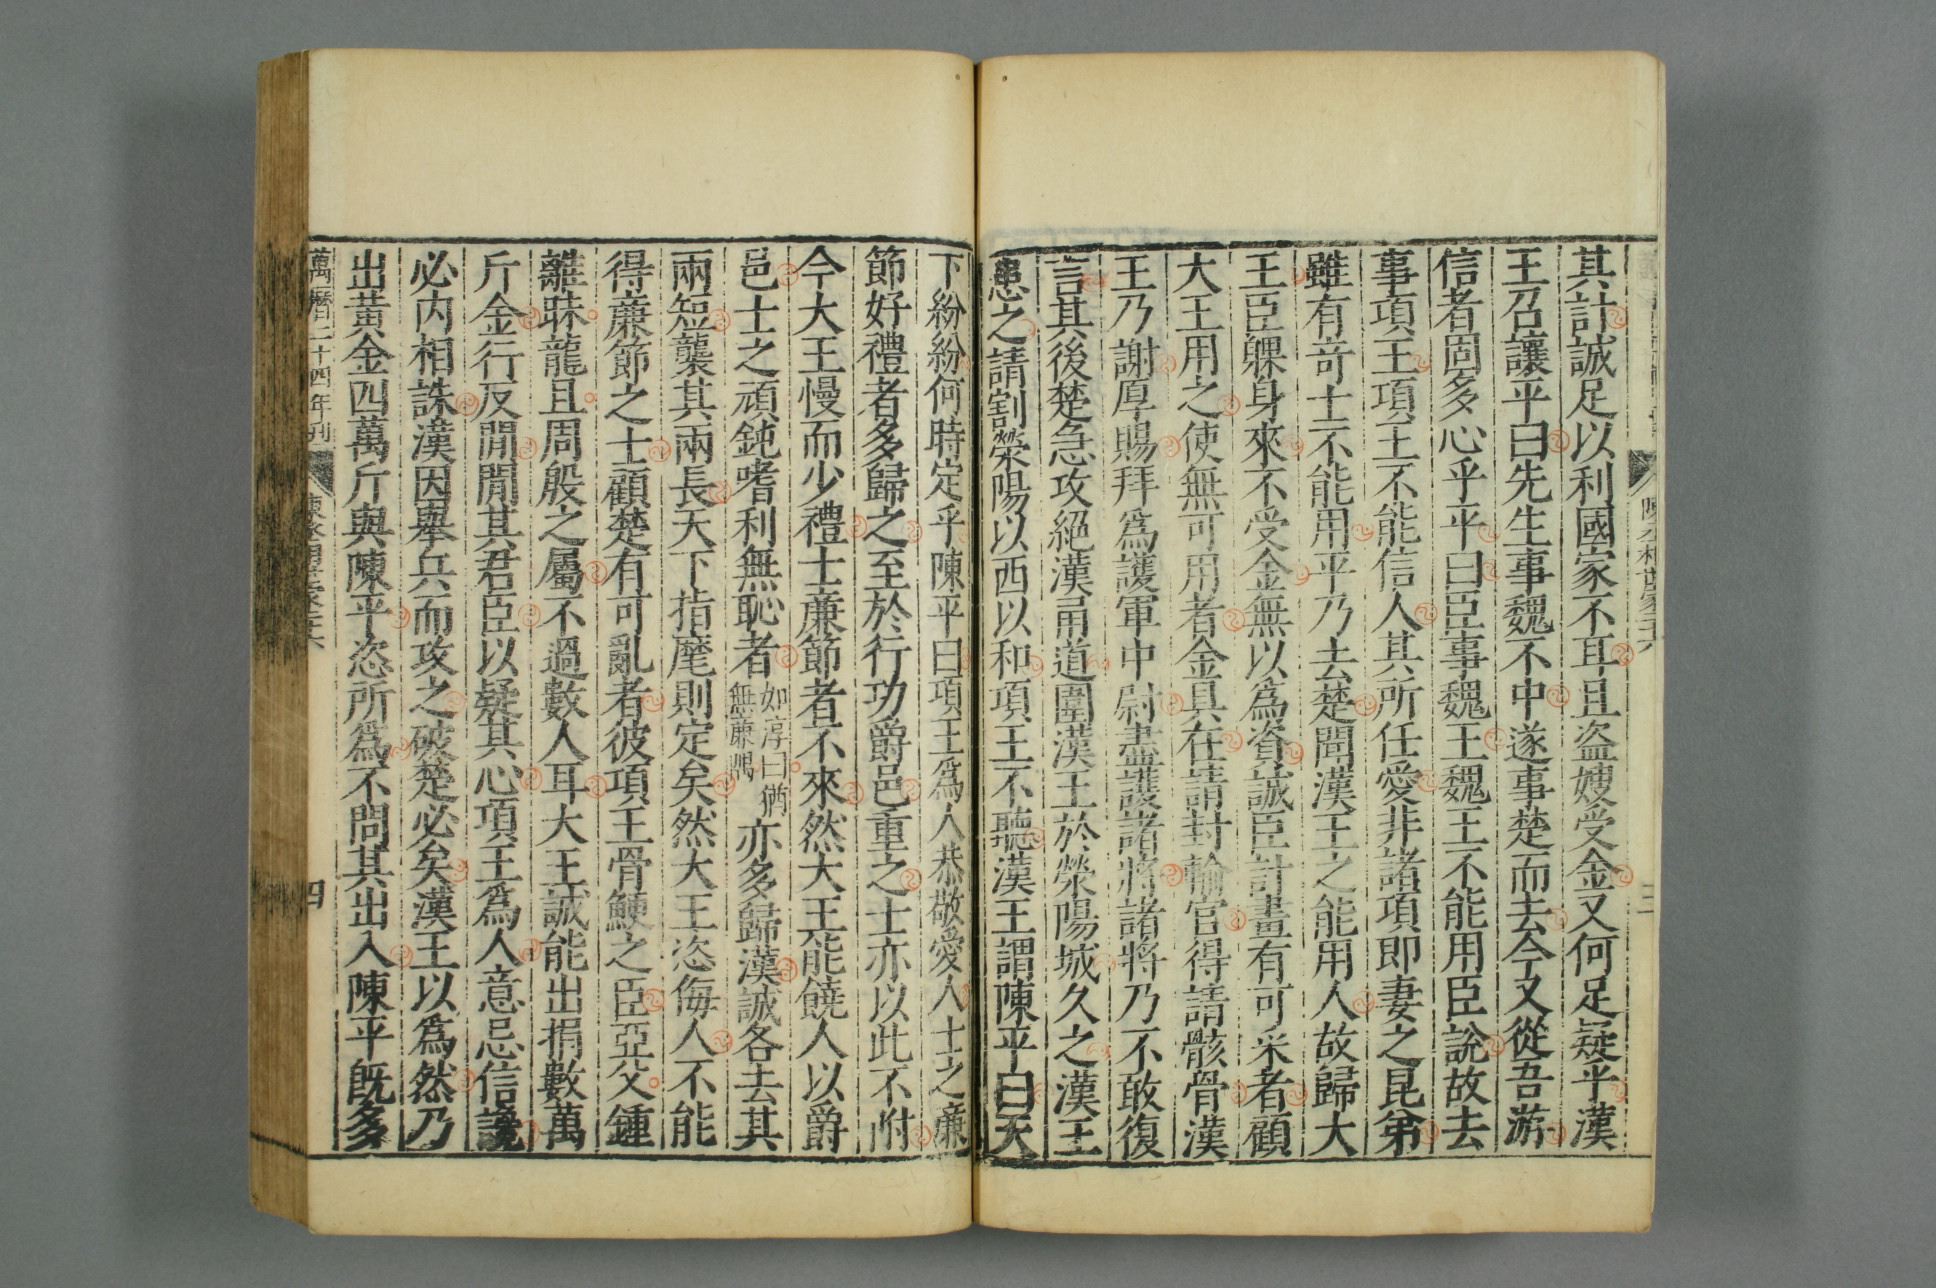 其計誠足以利國家不耳且盜嫂受金又何足疑乎漢
王召讓平曰先生事魏不中遂事楚而去今又從吾游
信者固多心乎平曰臣事魏王魏王不能用臣說故去
事項王項王不能信人其所任愛非諸項即妻之昆弟
雖有奇士不能用平乃去楚聞漢王之能用人故歸大
王臣躶身來不受金無以爲資誠臣計畫有可采者顧
大王用之使無可用者金具在請封輸官得請骸骨漢
王乃謝厚賜拜爲護軍中尉盡護諸將諸將乃不敢復
言其後楚急攻絕漢甬道圍漢王於滎陽城久之漢王
患之請割滎陽以西以和項王不聽漢王謂陳平曰天
下紛紛何時定乎陳平曰項王爲人恭敬愛人士之廉
節好禮者多歸之至於行功爵邑重之士亦以此不附
今大王慢而少禮士廉節者不來然大王能饒人以爵
邑士之頑鈍嗜利無恥者如淳曰猶無廉隅亦多歸漢誠各去其
兩短襲其兩長天下指麾則定矣然大王恣侮人不能
得廉節之士顧楚有可亂者彼項王骨鯁之臣亞父鍾
離眛龍且周殷之屬不過數人耳大王誠能出捐數萬
斤金行反間間其君臣以疑其心項王爲人意忌信讒
必內相誅漢因舉兵而攻之破楚必矣漢王以爲然乃
出黃金四萬斤與陳平恣所爲不問其出入陳平既多
萬曆二十四年刊
陳丞相世家二十六
四